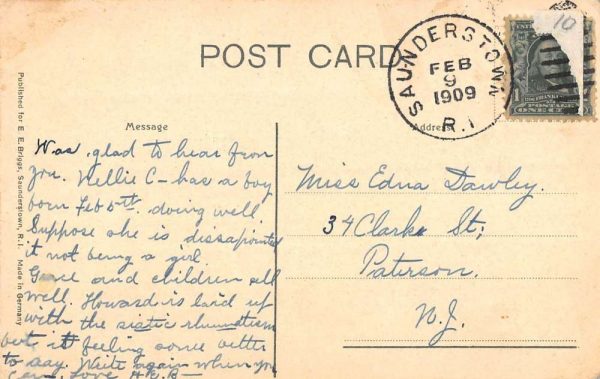 POST CARD
SAUNDERSTOWN
FEB
9
1909
R.I.
10
POSTAGE
Published for E. E. Briggs, Saunderstown, R. I. Made in Germany
Message
Address
Was glad to hear from
you. Nellie C- has a boy
born Feb 5th. doing well.
Suppose she is dissapointed
it not being a girl.
Grace and children all
well. Howard is laid up
with the siatic rhumatism
but is feeling some better
to day. Write again when you
can. Love H.E.B-
Miss Edna Dawley.
34 Clark St;
Paterson.
N.J.